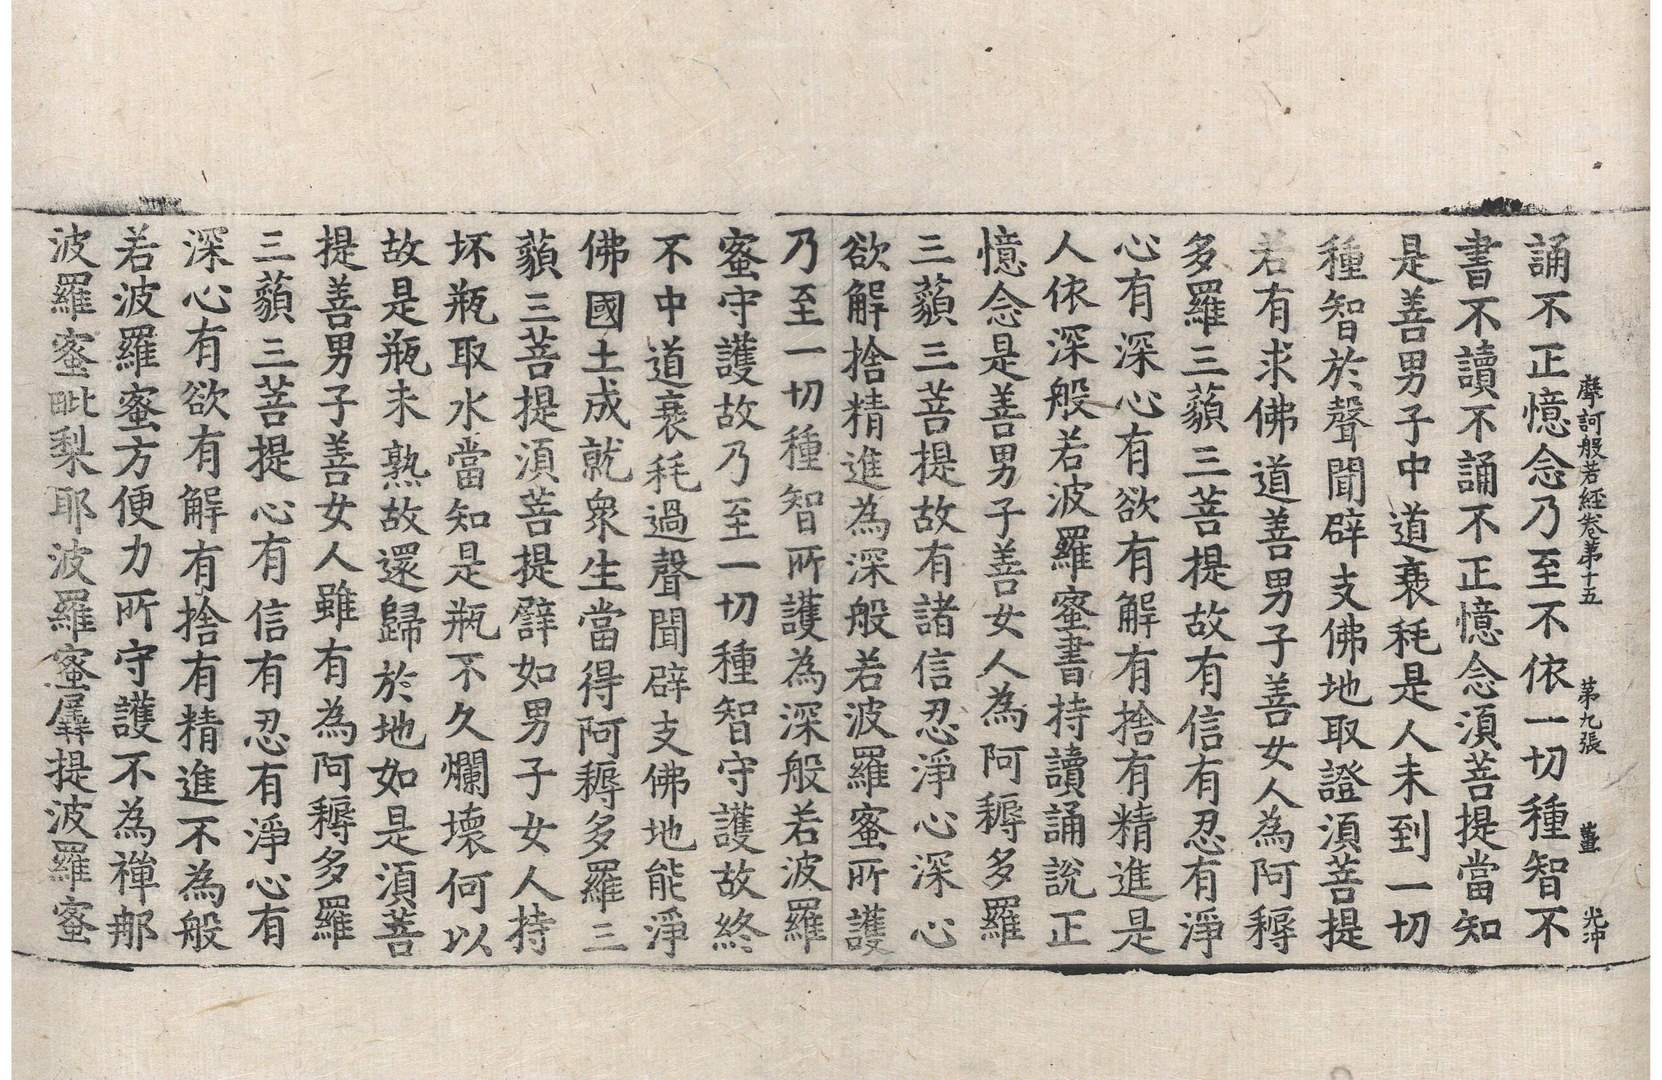 摩訶般若經卷第十五 第九張 薑 光沖
誦不正憶念乃至不依一切種智不
書不讀不誦不正憶念湏菩提當知
是善男子中道衰耗是人未到一切
種智於聲聞辟支佛地取證湏菩提
若有求佛道善男子善女人為阿耨
多羅三藐三菩提故有信有忍有淨
心有深心有欲有解有捨有精進是
人依深般若波羅蜜書持讀誦說正
憶念是善男子善女人為阿耨多羅
三藐三菩提故有諸信忍淨心深心
欲解捨精進為深般若波羅蜜所護
乃至一切種智所護為深般若波羅
蜜守護故乃至一切種智守護故終
不中道衰耗過聲聞辟支佛地能淨
佛國土成就衆生當得阿耨多羅三
藐三菩提湏菩提譬如男子女人持
坏瓶取水當知是瓶不久爛壞何以
故是瓶未熟故還歸於地如是湏菩
提善男子善女人雖有為阿耨多羅
三藐三菩提心有信有忍有淨心有
深心有欲有解有捨有精進不為般
若波羅蜜方便力所守護不為禪那
波羅蜜毗梨耶波羅蜜羼提波羅蜜